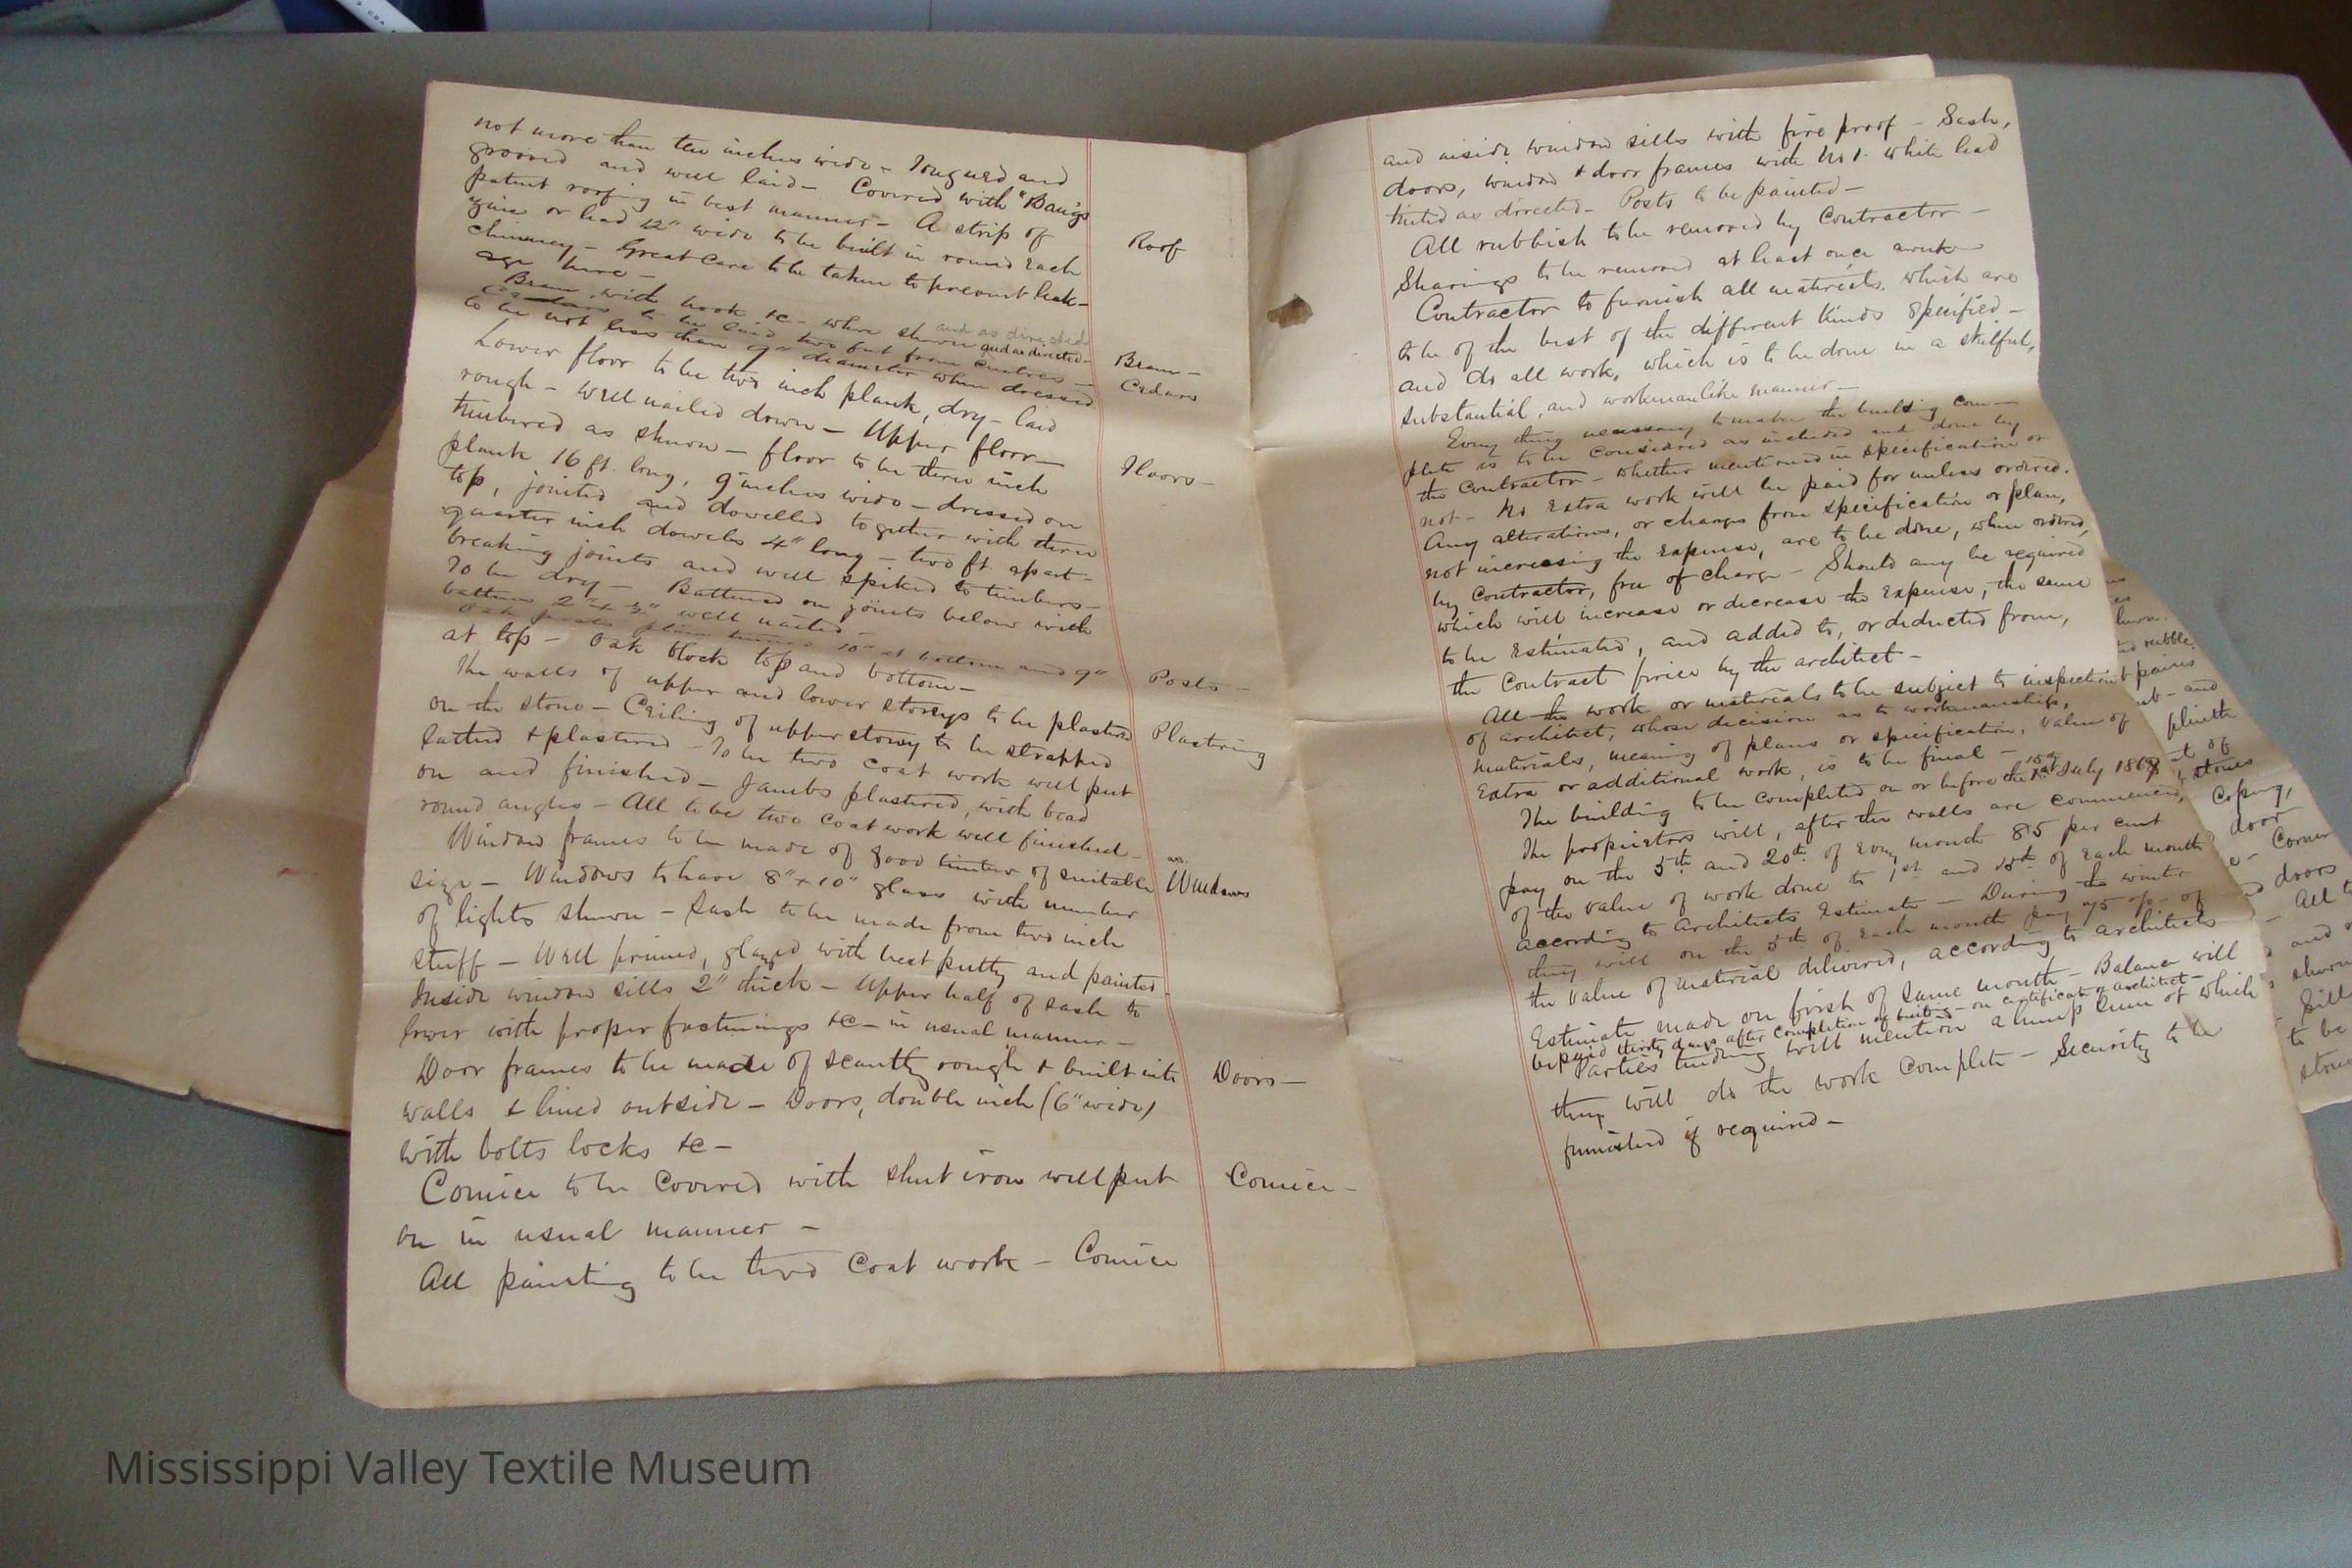 not more than ten inches wide - Tongued and
grooved and well laid - Covered with "Bangs
patent roofing in best manner - A strip of
zinc or lead 12" wide to be built in round each
chimney - Great care to be taken to prevent leak-
age here -
Roof
Beam with hook &c - where shewn and as directed
and as directed -
to be laid two feet from centres -
to be not less than 9" diameter when dressed
Beam -
Cedars
Lower floor to be two inch plank, dry - laid
rough - well nailed down - Upper floor -
timbered as shewn - floor to be three inch
plank 16 ft. long, 9 inches wide - dressed on
top, jointed and dowelled together with three
quarter inch dowels 4" long - two ft. apart -
breaking joints and well spiked to timbers -
To be dry - Battened on joints below with
battens 2" x ½" well nailed -
Floors -
Oak posts turned 10" at bottom and 9"
at top - Oak block top and bottom -
Posts -
The walls of upper and lower storeys to be plastered
on the stone - Ceiling of upper storey to be strapped
lathed & plastered - To be two coat work well put
on and finished - Jambs plastered, with bead
round angles - All to be two coat work well finished -
Plastering
Window frames to be made of good timber of suitable
size - Windows to have 8" x 10" glass with number
of lights shewn - Sash to be made from two inch
stuff - Well primed, glazed with best putty and painted -
Inside window sills 2" thick - Upper half of sash to
lower with proper fastenings &c - in usual manner -
Windows
Door frames to be made of scantlg rough & built into
walls & lined outside - Doors, double inch (6" wide)
with bolts locks &c -
Doors -
Cornice to be covered with sheet iron well put
on in usual manner -
Cornice -
All painting to be two coat work - Cornice
and inside window sills with fire proof - Sash,
doors, window & door frames with No 1. white lead
tinted as directed - Posts to be painted -
All rubbish to be removed by Contractor -
Shavings to be removed at least once a week -
Contractor to furnish all materials. which are
to be of the best of the different kinds specified -
and do all work, which is to be done in a skilful,
substantial, and workmanlike manner -
Every thing necessary to make the building com-
plete is to be considered as included and done by
the Contractor - whether mentioned in specification or
not - No Extra work will be paid for unless ordered.
Any alterations, or changes from specification or plan,
not increasing the Expense, are to be done, when ordered,
by Contractor, free of charge - Should any be required
which will increase or decrease the Expense, the same
to be Estimated, and added to, or deducted from,
the Contract price by the architect -
All the work or materials to be subject to inspection
of architect, whose decision as to workmanship,
materials, meaning of plans or specification, value of
Extra or additional work, is to be final -
The building to be completed on or before the 15th July 186
The proprietors will, after the walls are commenced,
pay on the 5th and 20th of every month 85 per cent
of the value of work done to 1st and 15th of each month
according to Architects Estimate - During the winter
they will on the 5th of each month pay 75 o/o of
the value of material delivered, according to architects
Estimate made on first of same month - Balance will
be paid thirty days after completion of building - on certificate of architect -
Parties tendering will mention a lump sum at which
they will do the work complete - Security to be
furnished if required -
rubble
plinth
at of
stones
Coping,
door
Corner
doors
All
and
shewn
Sill
to be
Mississippi Valley Textile Museum